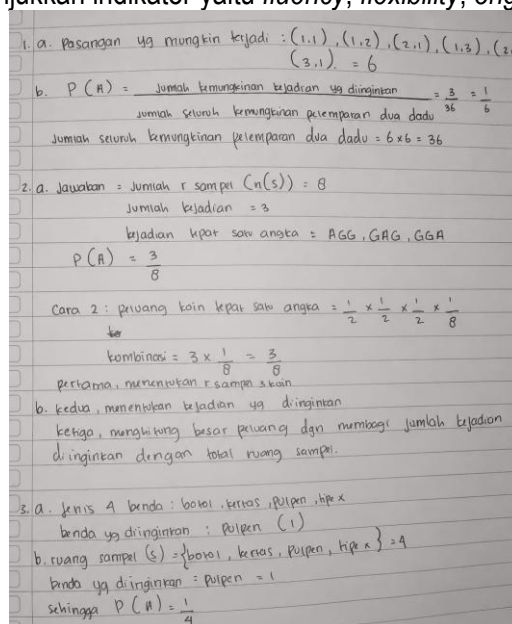 njukkan indikator yaitu fluency, flexibility, orig
1. a. Pasangan yg mungkin terjadi : (1,1), (1,2), (2,1), (1,3), (2,
(3,1). = 6
b. P(A) = Jumlah kemungkinan kejadian yg diinginkan = 3/36 = 1/6
Jumlah seluruh kemungkinan pelemparan dua dadu
Jumlah seluruh kemungkinan pelemparan dua dadu = 6x6 = 36
2. a. Jawaban = Jumlah r sampel (n(s)) = 8
Jumlah kejadian = 3
kejadian tepat satu angka = AGG, GAG, GGA
P(A) = 3/8
Cara 2 : peluang koin tepat satu angka = 1/2 x 1/2 x 1/2 x 1/8
kombinasi = 3 x 1/8 = 3/8
pertama, menentukan r sampel 3 koin
b. kedua, menentukan kejadian yg diinginkan
ketiga, menghitung besar peluang dgn membagi jumlah kejadian
diinginkan dengan total ruang sampel.
3. a. Jenis 4 benda : botol, kertas, pulpen, tipe x
benda yg diinginkan : pulpen (1)
b. ruang sampel (s) = {botol, kertas, pulpen, tipe x} = 4
benda yg diinginkan = pulpen = 1
sehingga P(A) = 1/4